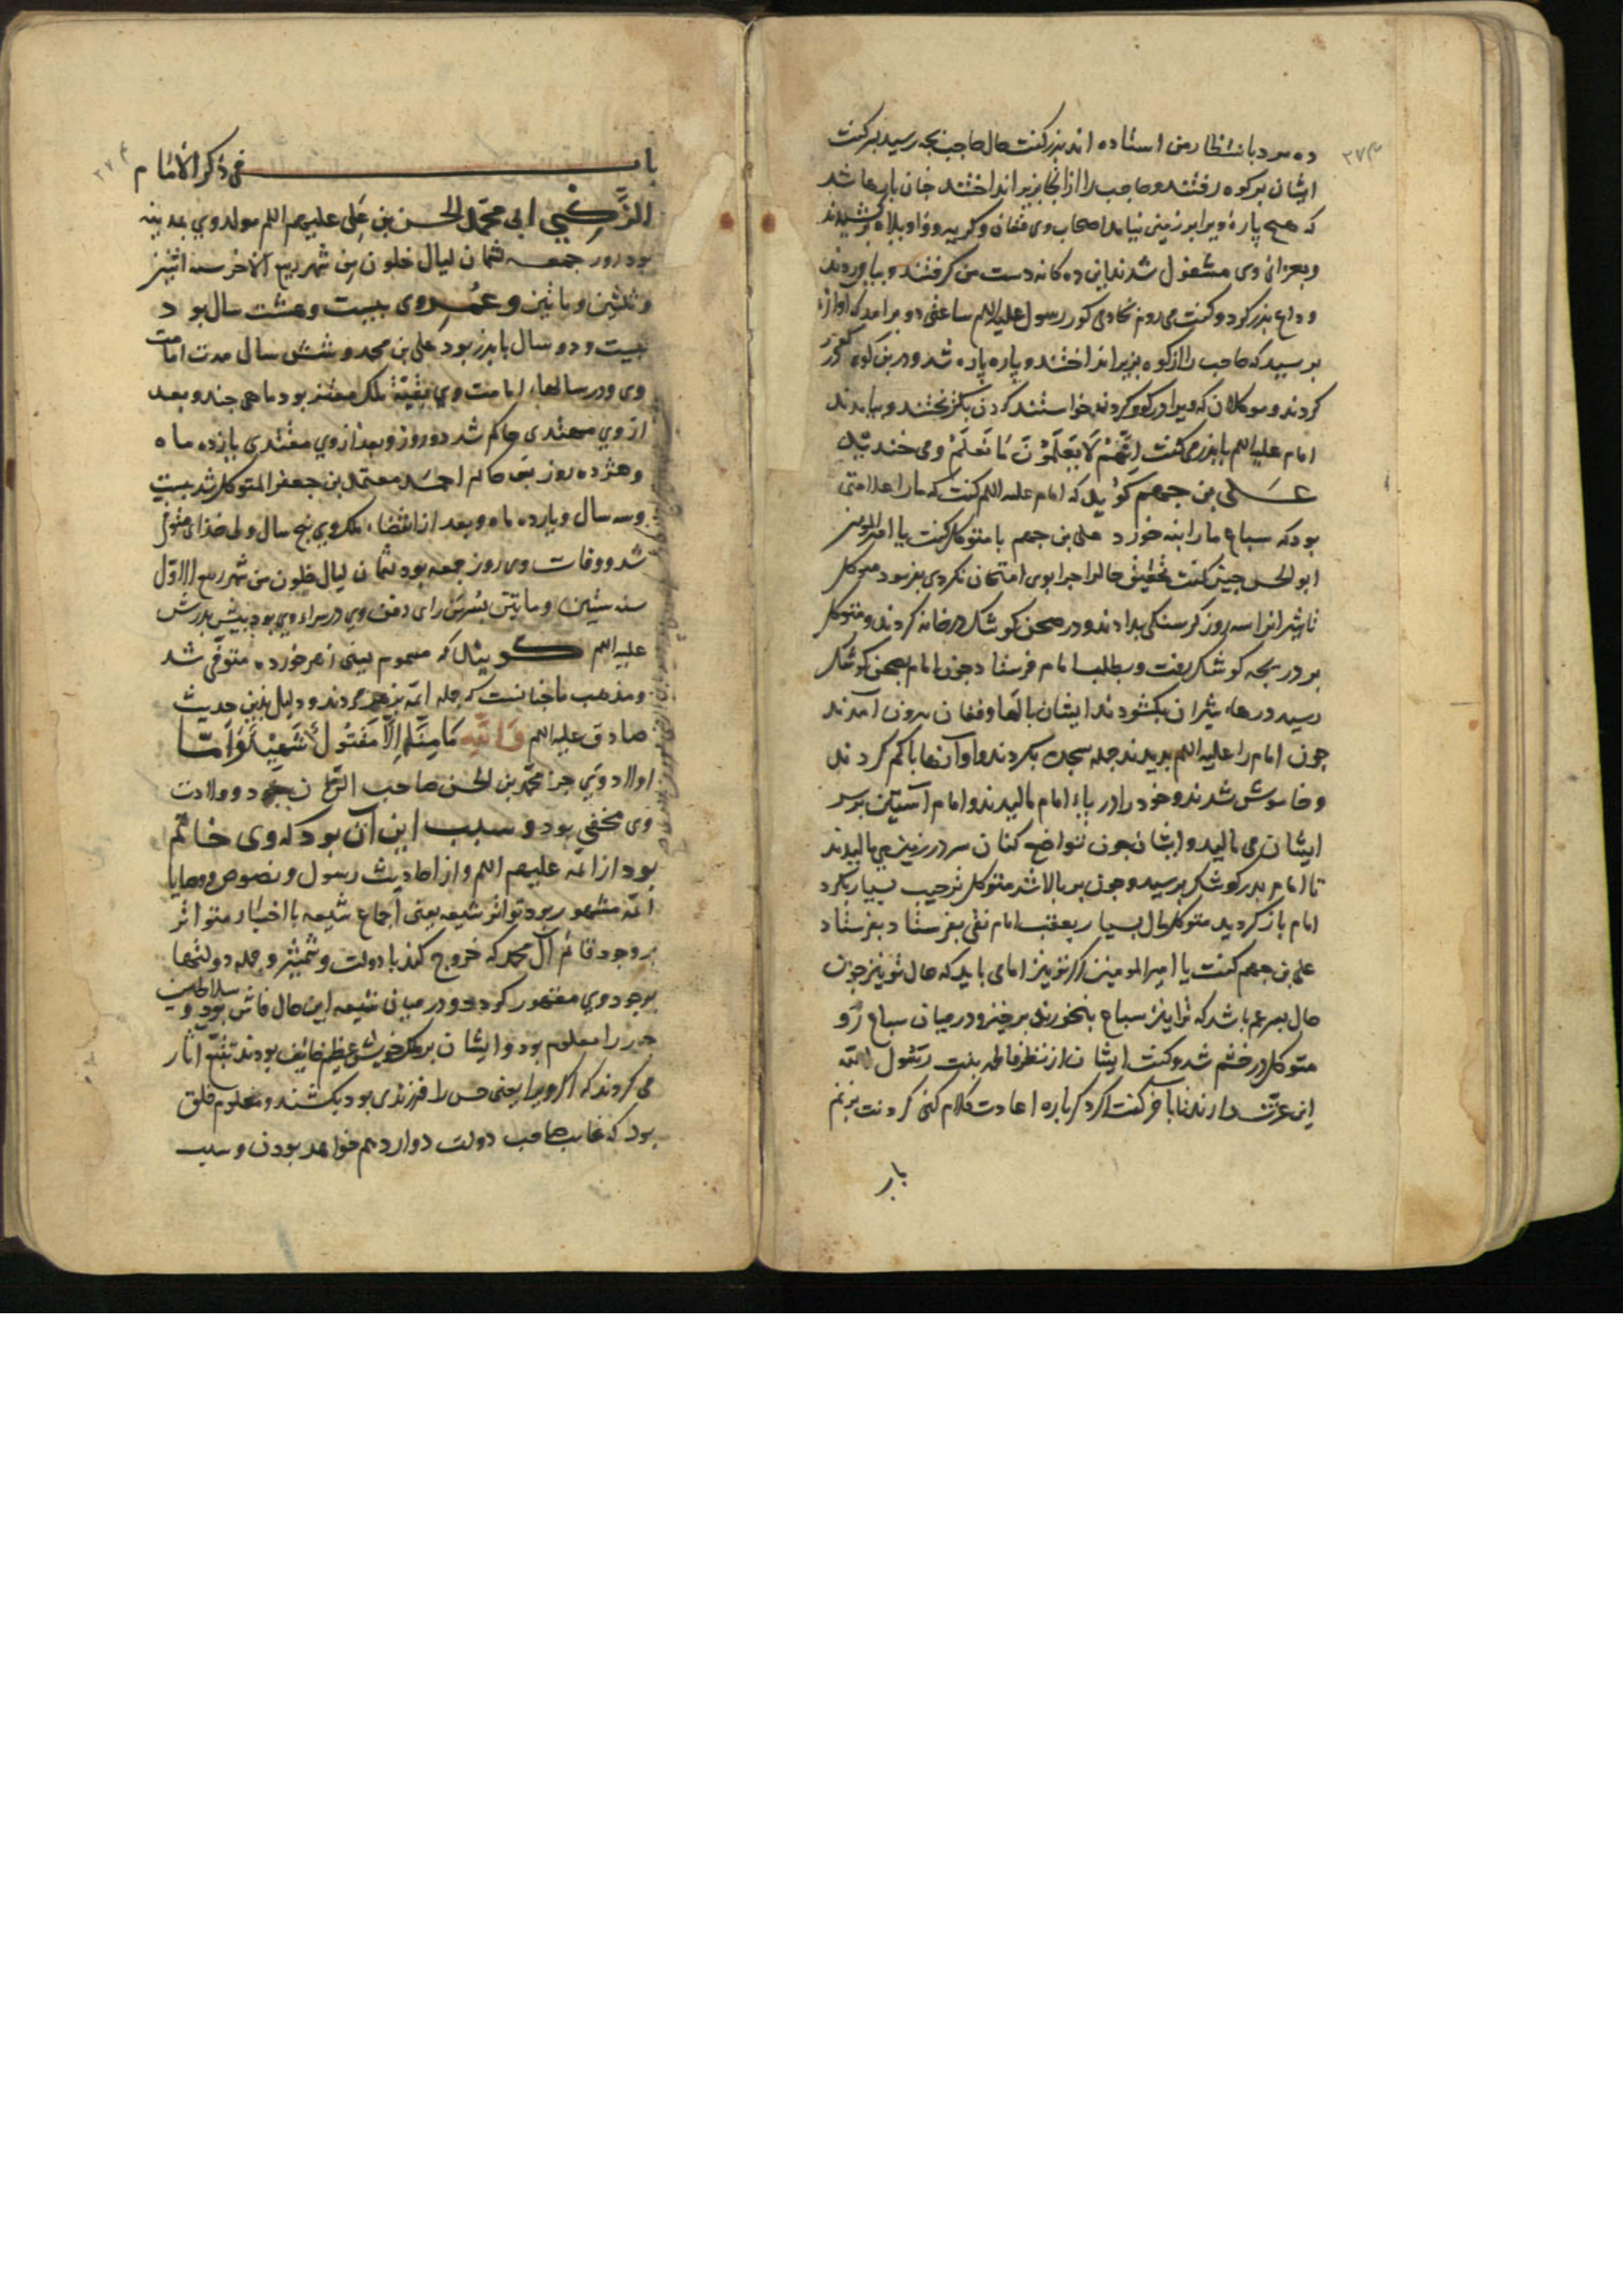 ۲۷۳
ده مرد بانتظار من استاده اند بدر كفت حال حاجب بجه رسيد بسر كفت
ايشان بر كوه رفتند و حاجب را از انجا بزير انداختند جنان پارها شد
كه هيچ پارهٔ ويرا بر زمين نيامد اصحاب وى فغان و كريه و واويلاه بركشيدند
و بعزاى وى مشغول شدند اين ده كانه دست من كرفتند و بياوردند
وداع بدر كرد و كفت مى روم بخادمى كور رسول عليه اللم ساعتى دو برامد كه اوازه
برسيد كه حاجب را از كوه بزير انداختند و پاره پاره شد و در بن كوه كور
كردند و موكلان كه ويرا در كور كردند خواستند كردن بكريختند و بيامدند
امام عليه اللم با بدر مى كفت اِنَّهُمْ لَا يَعْلَمُوْنَ مَا نَعْلَمُ ومى خنديد
عَلى بن جهم كويد كه امام عليه اللم كفت كه ما را علامتى
بود كه سباع ما را بنه خورد على بن جهم با متوكل كفت يا امير المومنين
ابو الحسن جنين كفت تحقيق حال را چرا بوى امتحان نكردى بفرمود متوكل
تا شيرانرا سه روز كرسنكى بدادند و در صحن كوشك در خانه كردند و متوكل
بر دريجه كوشك رفت و بطلب امام فرستاد جون امام بصحن كوشك
رسيد درهاء شيران بكشودند ايشان بانكها و فغان بيرون آمدند
جون امام را عليه اللم بديدند جمله سجده بكردند و اوازها باكم كردند
و خاموش شدند و خود را در پاء امام ماليدند و امام آستين بر سر
ايشان مى ماليد و ايشان جون تواضع كنان سر در زمين مى ماليدند
تا امام بدر كوشك برسيد و جون بر بالا شد متوكل ترحيب بسيار بكرد
امام باز كرديد متوكل مال بسيار بعقب امام نقى بفرستاد بفرستاد
على بن جهم كفت يا امير المومنين اكر تو نيز امامى بايد كه حال تو نيز جون
حال بسر عم باشد كه ترا نيز سباع بنخورند برخيز و در ميان سباع رو
متوكل در خشم شد و كفت ايشان از نظر فاطمه بنت رسول الله
اين عزت دارند نا با من كفت اكر دكرباره اعادت كلام كنى كردنت بزنم
باب
۲۷۴
باب فى ذكر الأمام
الزَّكِيِّ ابى محمّد الحسن بن عَلى عليهم اللم مولد وي بمدينه
بود روز جمعه ثمان ليال خلون مِن شهر ربيع الاخر سنه اثنين
و ثلثين و مائتين و عُمرِ وى بيست و هشت سال بود
بيست و دو سال با بدر بود على بن محمد و شش سال مدت امامت
وى و در سالهاء امامت وي بقيّهٔ ملك معتز بود ماهى جند و بعد
از وي مهتدى حاكم شد دو روز و بعد از وي مقتدى يازده ماه
و هژده روز بس حاكم احمد معتمد بن جعفر المتوكل شد بيست
و سه سال و يازده ماه و بعد از انقضاء ملك وي پنج سال ولى خداى متوفى
شد و وفات وى روز جمعه بود ثمان ليال خلون من شهر ربيع الاوّل
سنه ستين و مائتين بسُرّ من راى دفن وي در سراء وي بود پيش پدرش
عليه اللم كويند كه مسموم يعنى زهر خورده متوفى شد
و مذهب ما جنانست كه جمله ائمه بزهر مردند و دليل بدين حديث
صادق عليه اللم وَاللّٰهِ مَا مِنَّا اِلَّا مَقْتُولٌ شَهِيْدٌ وَ اَمَّا
اولاد وَي جز محمّد بن الحسن صاحب الزّمان نبود و ولادت
وى مخفى بود و سبب اين آن بود كه وى خاتم
بود از ائمه عليهم اللم و از احاديث رسول و نصوص و وصايا
ائمّه مشهور بود تواتر شيعه يعنى اجماع شيعه با اخبار متواتر
بر وجود قائم آل محمد كه خروج كند با دولت و شمشير و جمله دولتها
بوجود وي مقهور كردد و در ميان شيعه اين حال فاش بود و سلاطين
جور را معلوم بود و ايشان بر ملك خويش عظيم خايف بودند تتبّع اثار
مى كردند كه اكر ويرا يعنى حسن را فرزندى بود بكشند و معلوم خلق
بود كه غايب صاحب دولت دوازدهم خواهد بودن و سبب